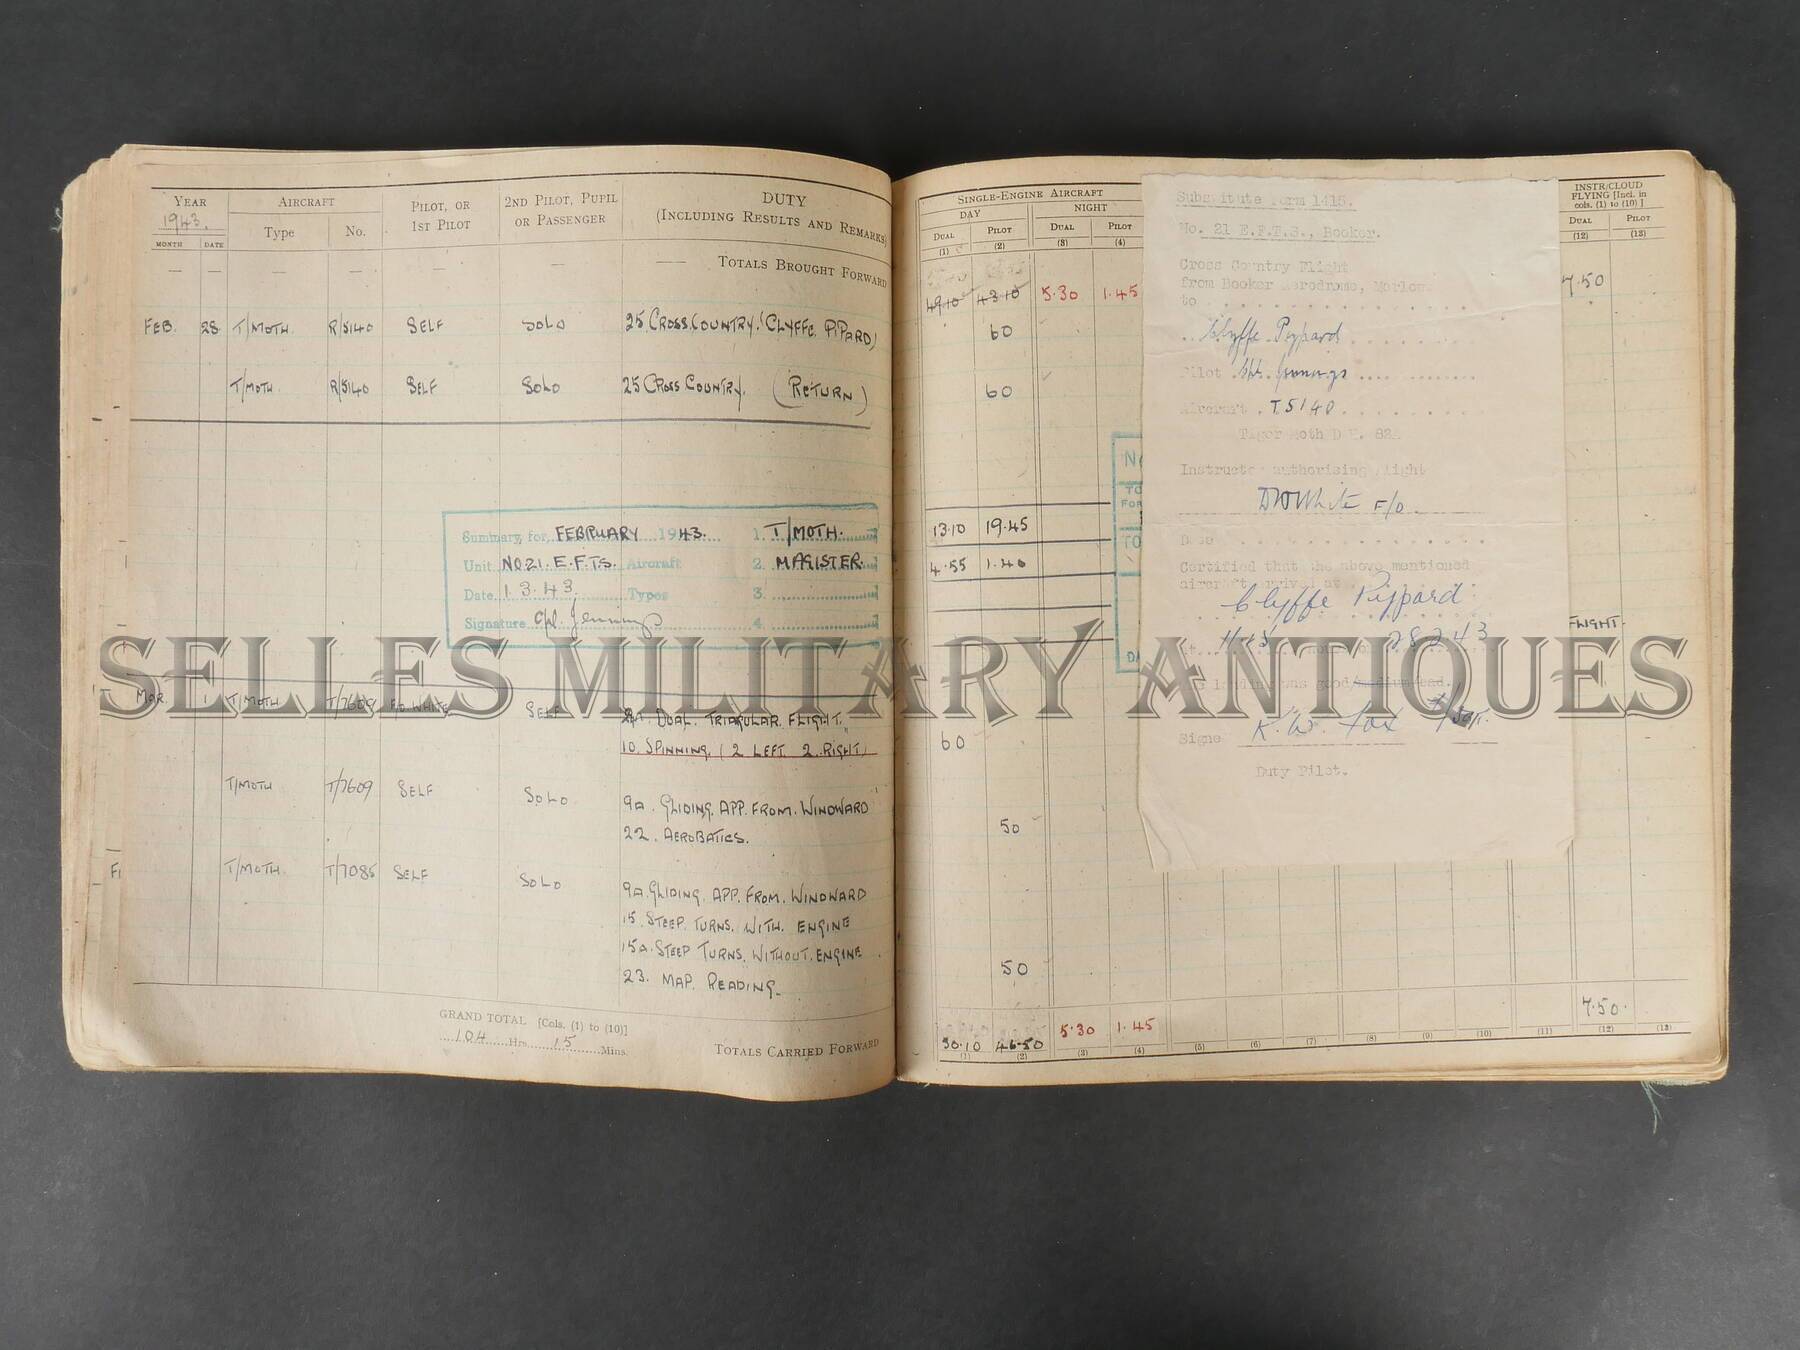 YEAR
1943.
MONTH DATE
AIRCRAFT
Type No.
PILOT, OR
1ST PILOT
2ND PILOT, PUPIL
OR PASSENGER
DUTY
(INCLUDING RESULTS AND REMARKS)
— — — — — — —— TOTALS BROUGHT FORWARD
FEB. 28 T/MOTH. R/5140 SELF SOLO 25 CROSS COUNTRY. (CLYFFE PIPARD)
T/MOTH R/5140 SELF SOLO 25 CROSS COUNTRY. (RETURN)
Summary for FEBRUARY 1943. 1. T/MOTH.
Unit NO 21. E.F.T.S. Aircraft 2. MAGISTER.
Date 1.3.43. Types 3.
Signature Cpl. Jennings 4.
MAR. 1 T/MOTH T/7609 F/O. WHITE SELF DUAL TRIAGULAR FLIGHT.
10. SPINNING (2 LEFT 2 RIGHT)
T/MOTH T/7609 SELF SOLO 9A. GLIDING. APP. FROM. WINDWARD
22. AEROBATICS.
T/MOTH. T/7085 SELF SOLO 9A. GLIDING. APP. FROM. WINDWARD
15. STEEP TURNS. WITH. ENGINE
15A. STEEP TURNS. WITHOUT. ENGINE.
23. MAP. READING.
GRAND TOTAL [Cols. (1) to (10)]
104 Hrs. 15 Mins.
TOTALS CARRIED FORWARD
SINGLE-ENGINE AIRCRAFT
DAY NIGHT
DUAL PILOT DUAL PILOT
(1) (2) (3) (4)
49.10 43.10 5.30 1.45
60
60
13.10 19.45
4.55 1.40
60
50
50
50.10 46.50 5.30 1.45
(1) (2) (3) (4) (5) (6) (7) (8) (9) (10) (11) (12) (13)
Substitute Form 1415.
No. 21 E.F.T.S., Booker.
Cross Country Flight
from Booker Aerodrome, Marlow.
to
Clyffe Pyppard
Pilot Cpl. Jennings
Aircraft T5140
Tiger Moth D.H. 82A
Instructor authorising flight
DW White F/O
Date
Certified that the above mentioned
aircraft arrived at
Clyffe Pyppard
at hours on 28 2 43
landing was good/medium/bad.
Signed K. W. Fox
Duty Pilot.
INSTR/CLOUD
FLYING [Incl. in
cols. (1) to (10) ]
DUAL PILOT
(12) (13)
7.50
FLIGHT.
7.50.
SELLES MILITARY ANTIQUES